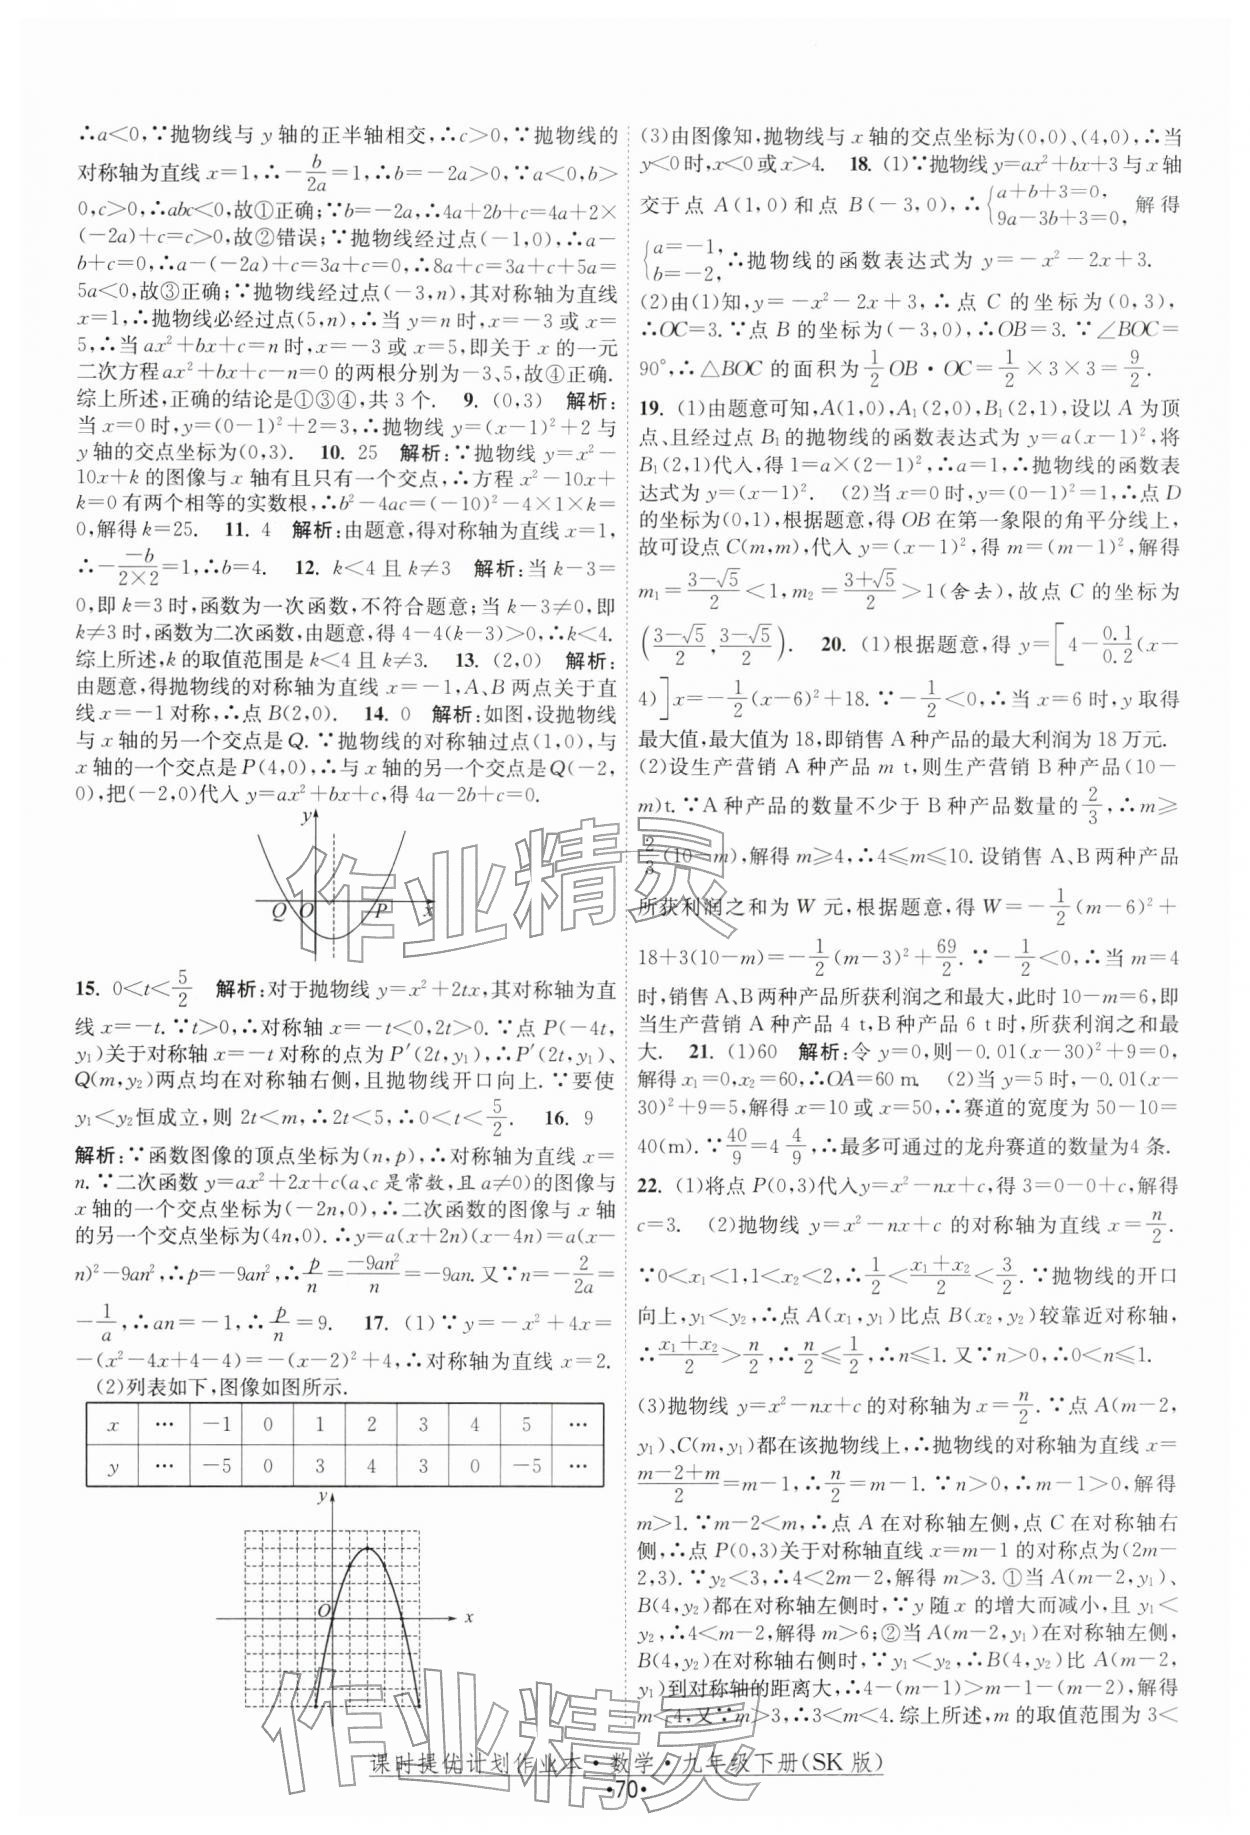 ∴a<0,∵抛物线与 y 轴的正半轴相交,∴c>0,∵抛物线的
对称轴为直线 x=1,∴-b/2a=1,∴b=-2a>0,∵a<0,b>
0,c>0,∴abc<0,故①正确;∵b=-2a,∴4a+2b+c=4a+2×
(-2a)+c=c>0,故②错误;∵抛物线经过点(-1,0),∴a-
b+c=0,∴a-(-2a)+c=3a+c=0,∴8a+c=3a+c+5a=
5a<0,故③正确;∵抛物线经过点(-3,n),其对称轴为直线
x=1,∴抛物线必经过点(5,n),∴当 y=n 时,x=-3 或 x=
5,∴当 ax²+bx+c=n 时,x=-3 或 x=5,即关于 x 的一元
二次方程 ax²+bx+c-n=0 的两根分别为-3、5,故④正确.
综上所述,正确的结论是①③④,共 3 个. 9. (0,3) 解析:
当 x=0 时,y=(0-1)²+2=3,∴抛物线 y=(x-1)²+2 与
y 轴的交点坐标为(0,3). 10. 25 解析:∵抛物线 y=x²-
10x+k 的图像与 x 轴有且只有一个交点,∴方程 x²-10x+
k=0 有两个相等的实数根,∴b²-4ac=(-10)²-4×1×k=
0,解得 k=25. 11. 4 解析:由题意,得对称轴为直线 x=1,
∴-(-b)/(2×2)=1,∴b=4. 12. k<4 且 k≠3 解析:当 k-3=
0,即 k=3 时,函数为一次函数,不符合题意;当 k-3≠0,即
k≠3 时,函数为二次函数,由题意,得 4-4(k-3)>0,∴k<4.
综上所述,k 的取值范围是 k<4 且 k≠3. 13. (2,0) 解析:
由题意,得抛物线的对称轴为直线 x=-1,A、B 两点关于直
线 x=-1 对称,∴点 B(2,0). 14. 0 解析:如图,设抛物线
与 x 轴的另一个交点是 Q.∵抛物线的对称轴过点(1,0),与
x 轴的一个交点是 P(4,0),∴与 x 轴的另一个交点是Q(-2,
0),把(-2,0)代入 y=ax²+bx+c,得 4a-2b+c=0.
y
Q O P x
15. 0<t<5/2 解析:对于抛物线 y=x²+2tx,其对称轴为直
线 x=-t.∵t>0,∴对称轴 x=-t<0,2t>0.∵点 P(-4t,
y₁)关于对称轴 x=-t 对称的点为 P′(2t,y₁),∴P′(2t,y₁)、
Q(m,y₂)两点均在对称轴右侧,且抛物线开口向上.∵要使
y₁<y₂恒成立,则 2t<m,∴2t<5,∴0<t<5/2. 16. 9
解析:∵函数图像的顶点坐标为(n,p),∴对称轴为直线 x=
n.∵二次函数 y=ax²+2x+c(a、c 是常数,且 a≠0)的图像与
x 轴的一个交点坐标为(-2n,0),∴二次函数的图像与 x 轴
的另一个交点坐标为(4n,0).∴y=a(x+2n)(x-4n)=a(x-
n)²-9an²,∴p=-9an²,∴p/n=-9an²/n=-9an.又∵n=-2/2a=
-1/a,∴an=-1,∴p/n=9. 17. (1)∵y=-x²+4x=
-(x²-4x+4-4)=-(x-2)²+4,∴对称轴为直线 x=2.
(2)列表如下,图像如图所示.
x … -1 0 1 2 3 4 5 …
y … -5 0 3 4 3 0 -5 …
y
O x
(3)由图像知,抛物线与 x 轴的交点坐标为(0,0)、(4,0),∴当
y<0 时,x<0 或 x>4. 18. (1)∵抛物线 y=ax²+bx+3 与 x 轴
交于点 A(1,0)和点 B(-3,0),∴{a+b+3=0, 9a-3b+3=0, 解得
{a=-1, b=-2, ∴抛物线的函数表达式为 y=-x²-2x+3.
(2)由(1)知,y=-x²-2x+3,∴点 C 的坐标为(0,3),
∴OC=3.∵点 B 的坐标为(-3,0),∴OB=3.∵∠BOC=
90°,∴△BOC 的面积为1/2 OB·OC=1/2×3×3=9/2.
19. (1)由题意可知,A(1,0),A₁(2,0),B₁(2,1),设以 A 为顶
点、且经过点 B₁的抛物线的函数表达式为 y=a(x-1)²,将
B₁(2,1)代入,得 1=a×(2-1)²,∴a=1,∴抛物线的函数表
达式为 y=(x-1)². (2)当 x=0 时,y=(0-1)²=1,∴点 D
的坐标为(0,1),根据题意,得 OB 在第一象限的角平分线上,
故可设点 C(m,m),代入 y=(x-1)²,得 m=(m-1)²,解得
m₁=(3-√5)/2<1,m₂=(3+√5)/2>1(舍去),故点 C 的坐标为
((3-√5)/2,(3-√5)/2). 20. (1)根据题意,得 y=[4-0.1/0.2(x-
4)]x=-1/2(x-6)²+18.∵-1/2<0,∴当 x=6 时,y 取得
最大值,最大值为 18,即销售 A 种产品的最大利润为 18 万元.
(2)设生产营销 A 种产品 m t,则生产营销 B 种产品(10-
m)t.∵A 种产品的数量不少于 B 种产品数量的2/3,∴m≥
2/3(10-m),解得 m≥4,∴4≤m≤10.设销售 A、B 两种产品
所获利润之和为 W 元,根据题意,得 W=-1/2(m-6)²+
18+3(10-m)=-1/2(m-3)²+69/2.∵-1/2<0,∴当 m=4
时,销售 A、B 两种产品所获利润之和最大,此时 10-m=6,即
当生产营销 A 种产品 4 t,B 种产品 6 t 时,所获利润之和最
大. 21. (1)60 解析:令 y=0,则-0.01(x-30)²+9=0,
解得 x₁=0,x₂=60,∴OA=60 m. (2)当 y=5 时,-0.01(x-
30)²+9=5,解得 x=10 或 x=50,∴赛道的宽度为 50-10=
40(m).∵40/9=4 4/9,∴最多可通过的龙舟赛道的数量为 4 条.
22. (1)将点 P(0,3)代入 y=x²-nx+c,得 3=0-0+c,解得
c=3. (2)抛物线 y=x²-nx+c 的对称轴为直线 x=n/2.
∵0<x₁<1,1<x₂<2,∴1/2<(x₁+x₂)/2<3/2.∵抛物线的开口
向上,y₁<y₂,∴点 A(x₁,y₁)比点 B(x₂,y₂)较靠近对称轴,
∴(x₁+x₂)/2>n/2,∴n/2≤1/2,∴n≤1.又∵n>0,∴0<n≤1.
(3)抛物线 y=x²-nx+c 的对称轴为 x=n/2.∵点 A(m-2,
y₁)、C(m,y₁)都在该抛物线上,∴抛物线的对称轴为直线 x=
(m-2+m)/2=m-1,∴n/2=m-1.∵n>0,∴m-1>0,解得
m>1.∵m-2<m,∴点 A 在对称轴左侧,点 C 在对称轴右
侧,∴点 P(0,3)关于对称轴直线 x=m-1 的对称点为(2m-
2,3).∵y₂<3,∴4<2m-2,解得 m>3.①当 A(m-2,y₁)、
B(4,y₂)都在对称轴左侧时,∵y 随 x 的增大而减小,且 y₁<
y₂,∴4<m-2,解得 m>6;②当 A(m-2,y₁)在对称轴左侧,
B(4,y₂)在对称轴右侧时,∵y₁<y₂,∴B(4,y₂)比 A(m-2,
y₁)到对称轴的距离大,∴4-(m-1)>m-1-(m-2),解得
m<4,又∵m>3,∴3<m<4.综上所述,m 的取值范围为 3<
课时提优计划作业本·数学·九年级下册(SK 版)
·70·
作业精灵
作业精灵